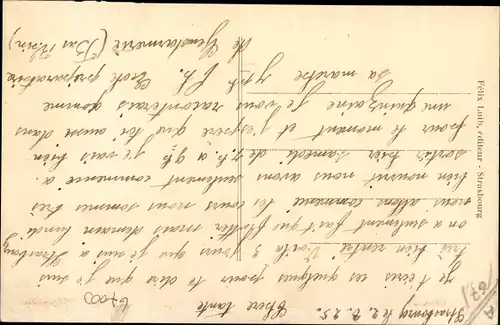 Strasbourg le 2.8.25.
Chère tante
Je t'écris ces quelques pour te dire que je suis
très bien rentré Voilà 3 jours que je suis à Strasbourg
on a seulement fait que flotter mais demain lundi
nous allons commencé tous les jours nous sommes très
bien nourrit nous avons seulement commencé a
sortir hier samedi de 7 h. a 9 h je vais bien
pour le moment et j'espère que toi aussi dans
une quinzaine je vous raconterais comme
sa marche
Ecole préparatoire
de Gendarmerie (Bas Rhin)
Félix Luib, éditeur - Strasbourg
67000
67